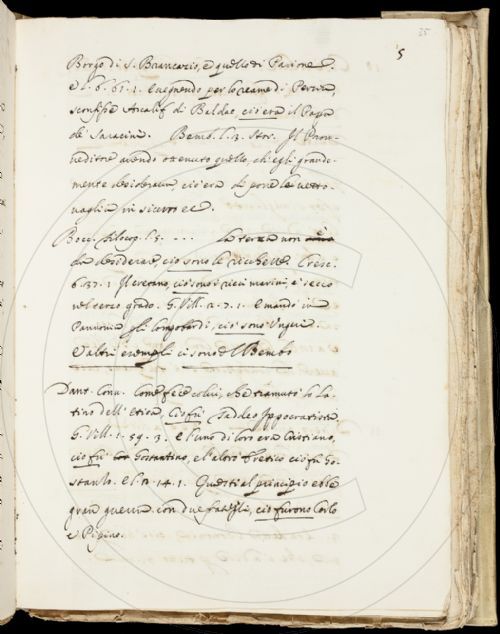 25
5
Borgo di S. Brancazio, e quello di Parione.
e l. 6. 61. 1. e vegnendo per lo reame di Persia,
sconfisse Arcalif di Baldac, ciò era il Papa
de' Saracini. Bemb. l. 3. Stor. Il Prov-
veditore avendo ottenuto quello, ch'egli grande-
mente desiderava, ciò era di porre le vetto-
vaglie in sicuro ec.
Bocc. Filocop. l. 5. - - - La terza non
da desiderare, ciò sono le ricchezze. Cresc.
6. 37. 1 Il cretano, ciò sono i ricci marini, è secco
nel terzo grado. G. Vill. 2. 7. 1. e mandò in
Pannonia gli Longobardi, ciò sono Ungari.
E altri esempli ci sono del Bembo
Dant. Conv. Come fece colui, che tramutò lo La-
tino dell'Etica, Ciò fu Taddeo Ippocratista
G. Vill. 1. 59. 3. e l'uno di loro era Cristiano,
ciò fu Gostantino, e l'altro Eretico ciò fu Go-
stanzo. e l. 2. 14. 1. Questi al principio ebbe
gran guerra con due frategli, ciò furono Carlo
e Pipino.